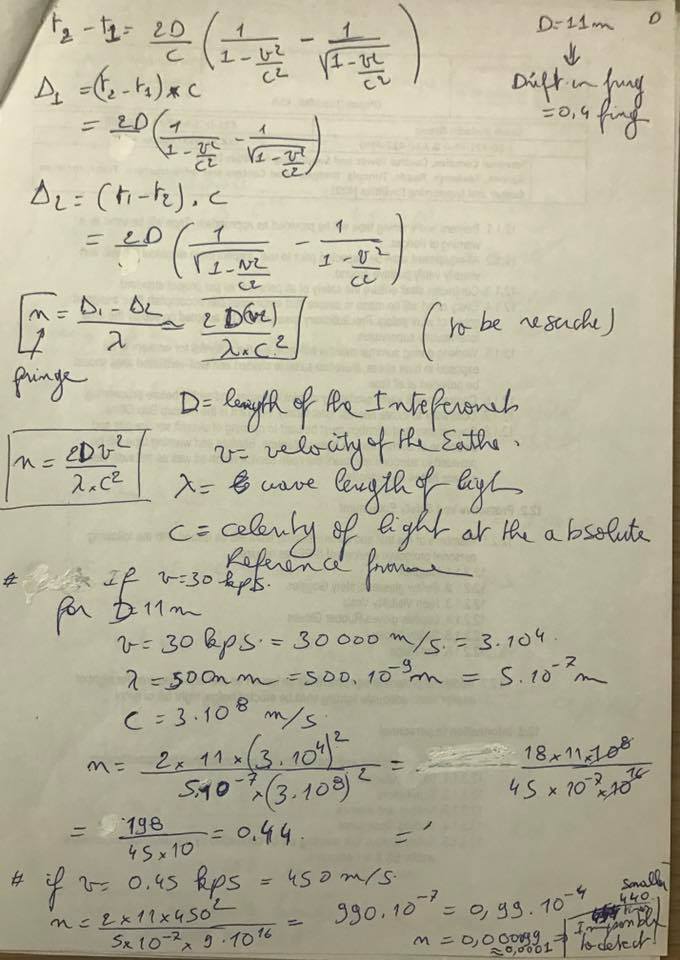 t₂ - t₁ = 2D/C (1/(1 - v²/c²) - 1/√(1 - v²/c²))
D = 11 m
↓
Drift in fring
= 0,4 fring
Δ₁ = (t₂ - t₁) * c
= 2D (1/(1 - v²/c²) - 1/√(1 - v²/c²))
Δ₂ = (t₁ - t₂) . c
= 2D (1/√(1 - v²/c²) - 1/(1 - v²/c²))
n = (Δ₁ - Δ₂)/λ ≈ 2D(v²)/(λ × c²)
fringe
D = length of the
n = 2Dv²/(λ × c²)
v = velocity of the
λ = wave length of
C = celerity of light at the absolute
Reference frame
# If v = 30 kps.
for D = 11 m
v = 30 kps. = 30 000 m/s. = 3.10⁴.
λ = 500 n m = 500. 10⁻⁹ m = 5.10⁻⁷ m
C = 3.10⁸ m/s.
n = 2 × 11 × (3.10⁴)²/(5.10⁻⁷ × (3.10⁸)²) = 18 × 11 × 10⁸/(45 × 10⁻⁷ × 10¹⁶)
= 198/(45 × 10) = 0.44. =
# if v = 0.45 kps = 450 m/s.
n = 2 × 11 × 450²/(5 × 10⁻⁷ × 9.10¹⁶) = 990.10⁻⁷ = 0,99.10⁻⁴
n = 0,000099 ⇒
≈ 0,0001
440
Impossible
to detect